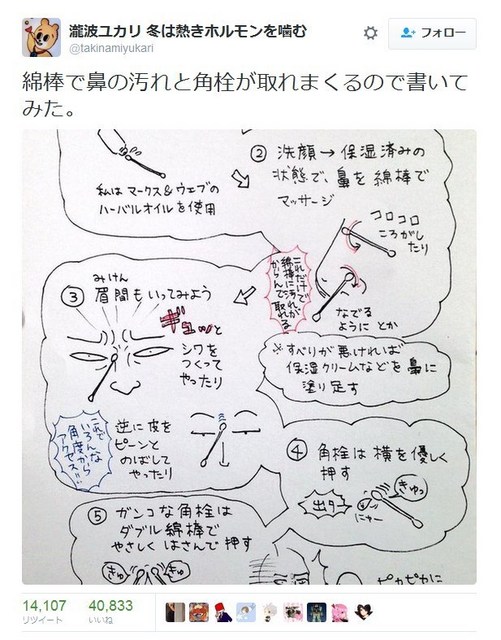 瀧波ユカリ 冬は熱きホルモンを噛む
@takinamiyukari
フォロー
綿棒で鼻の汚れと角栓が取れまくるので書いて
みた。
私は マークス&ウェブの
ハーバルオイルを使用
② 洗顔→保湿済みの
状態で、鼻を綿棒で
マッサージ
コロコロ
ころがし
たり
これだけで
綿棒に汚れが
からんで取れる
なでる
ように とか
※すべりが悪ければ
保湿クリームなどを鼻に
塗り足す
③
みけん
眉間もいってみよう
ギュッと
シワを
つくって
やったり
逆に皮を
ピーンと
のばして
やったり
これで
いろんな
角度から
アクセス!!
④ 角栓は横を優しく
押す
きゅっ
出タ!
にゅー
⑤ ガンコな角栓は
ダブル綿棒で
やさしくはさんで押す
きゅ
きゅ
ピカピカに
14,107
40,833
リツイート
いいね